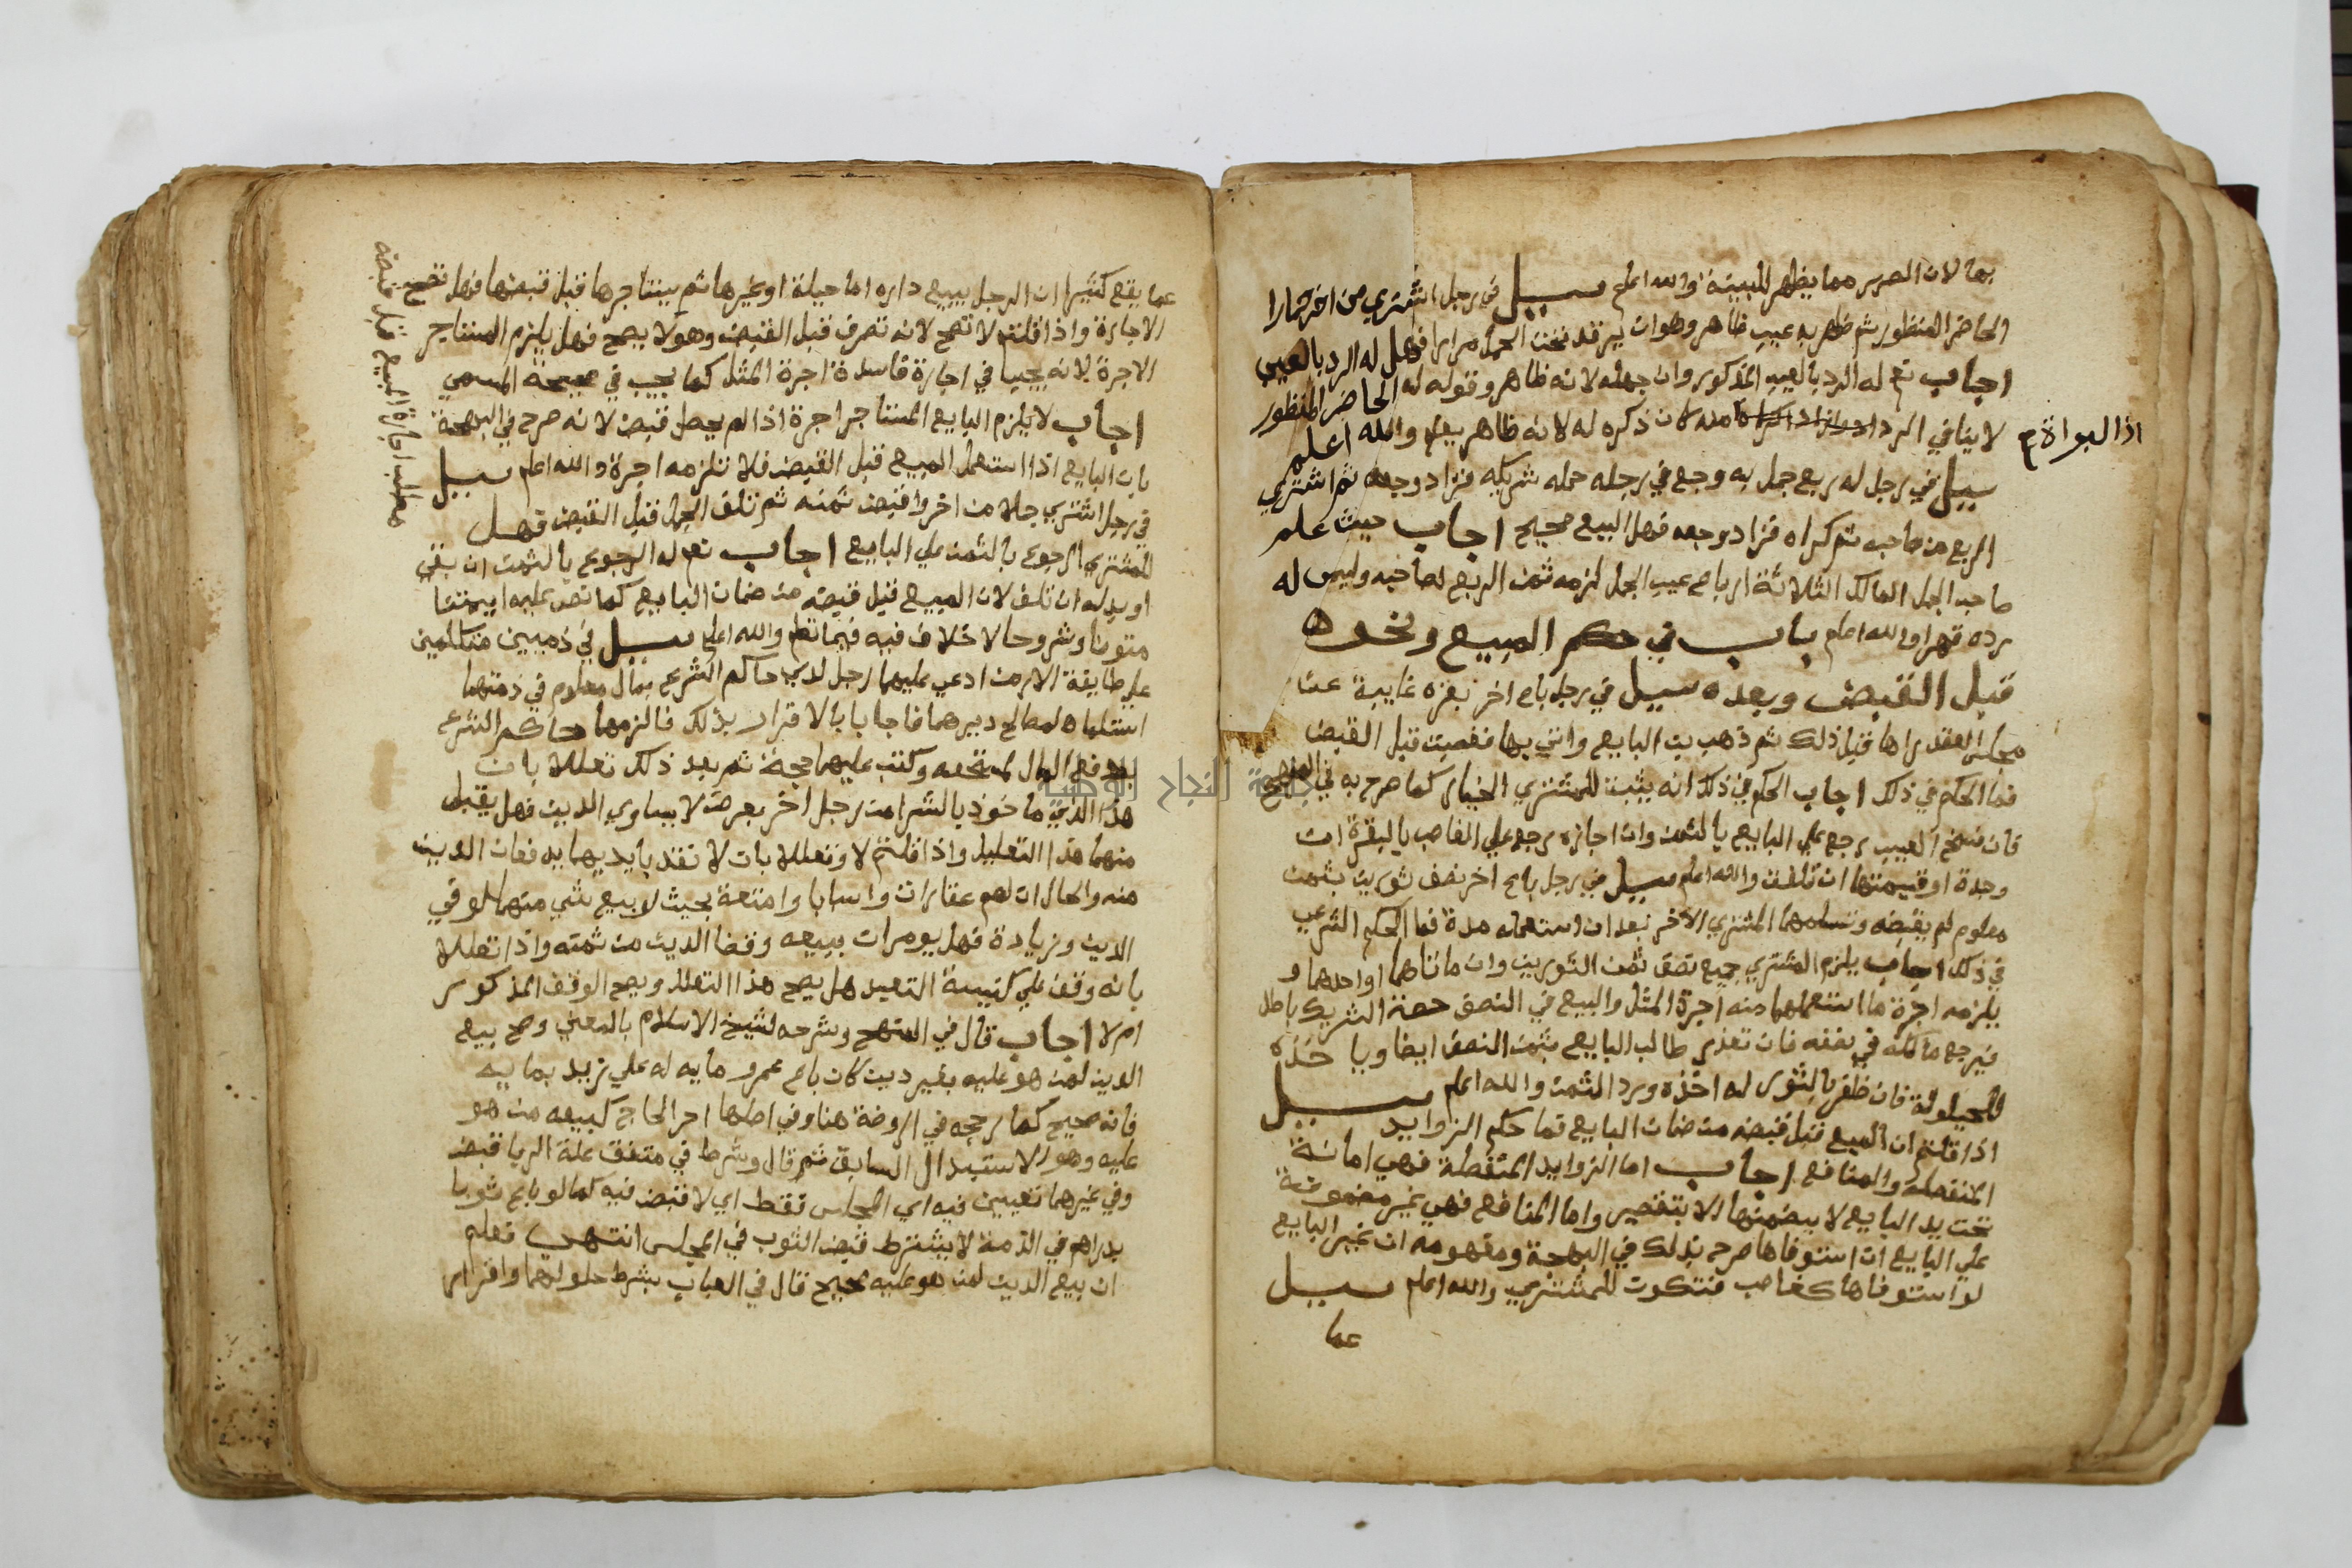 بما لان الصرير مما يظهر للبينة والله اعلم سيل في رجل اشتري من اخر حمارا
الحاضر المنظور ثم ظهر به عيب ظاهر وهو ان يرقد تحت الحمل مرارا فهل له الرد بالعيب
اجاب نعم له الرد بالعيب المذكور وان جهله لانه ظاهر وقوله له الحاضر المنظور
لا ينافي الرد منه كان ذكره له لانه ظاهر يعلم والله اعلم
اذا البراة م
سيل في رجل له ربع جمل به وجع في رجله حمله شريكه فزاد وجعه ثم اشتري
الربع من صاحبه ثم كراه فزاد وجعه فهل البيع صحيح اجاب حيث علم
صاحب الجمل المالك الثلاثة ارباع عيب الجمل لزمه ثمن الربع لصاحبه وليس له
رده قهرا والله اعلم باب في حكم المبيع ونحوه
قبل القبض وبعده سيل في رجل باع اخر بقرة غايبة عن
مجلس العقد راها قبل ذلك ثم ذهب بن البايع واتي بها فغصبت قبل القبض
فما الحكم في ذلك اجاب الحكم في ذلك انه يثبت للمشتري الخيار كما صرح به في المنهج
فان فسخ العيب رجع علي البايع بالثمن وان اجازه رجع علي الغاصب بالبقرة ان
وجدة او قيمتها ان تلفت والله اعلم سيل في رجل باع اخر نصف ثورين بثمن
معلوم لم يقبضه وتسلمهما المشتري الاخر بعد ان استعمله مدة فما الحكم الشرعي
في ذلك اجاب يلزم المشتري جميع نصف ثمن الثورين وان ماتا هما او احدهما و
يلزمه اجرة ما استعملهما منه اجرة المثل والبيع في النصف حصة الشريك باطل
فيرجع مالكه في نصفه فان تعذر طالب البايع بثمن النصف ايضا ويا خذه
للحيلولة فان ظفر بالثور له اخذه ورد الثمن والله اعلم سيل
اذا قلتم ان المبيع قبل قبضه من ضمان البايع فما حكم الزوايد
المنفصلة والمنافع اجاب اما الزوايد المنفصلة فهي امانة
تحت يد البايع لا يضمنها الا بتقصير واما المنافع فهي غير مضمونة
علي البايع ان استوفاها صرح بذلك في البهجة ومفهومه ان غير البايع
لو استوفاها كغاصب فتكون للمشتري والله اعلم سيل
عما
عما يقع كثيرا ان الرجل يبيع داره اما حيلة او غيرها ثم يستاجرها قبل قبضها فهل تصح
الاجارة واذا قلتم لا تصح لانه تصرف قبل القبض وهو لا يصح فهل يلزم المستاجر
الاجرة لانه يجب في اجارة فاسدة اجرة المثل كما يجب في صحيحة المسمي
اجاب لا يلزم البايع المستاجر اجرة اذا لم يحصل قبض لانه صرح في البهجة
بان البايع اذا استعمل المبيع قبل القبض فلا تلزمه اجرة والله اعلم سيل
في رجل اشتري جملا من اخر واقبض ثمنه ثم تلف الجمل قبل القبض فهل
للمشتري الرجوع بالثمن علي البايع اجاب نعم له الرجوع بالثمن ان بقي
او بدله ان تلف لان المبيع قبل قبضه من ضمان البايع كما نص عليه ايمتنا
متونا وشروحا لا خلاف فيه فيما نعلم والله اعلم سيل في ذميين متكلمين
علي طايفة الارمن ادعي عليهما رجل لدي حاكم الشرع بمال معلوم في ذمتهما
استلماه لمصالح ديرهما فاجابا بالاقرار بذلك فالزمهما حاكم الشرع
بدفع المال لمستحقه وكتب عليهما حجة ثم بعد ذلك تعللا بان
هذا الدين ماخوذ بالشرا من رجل اخر بعرض لا يساوي الدين فهل يقبل
منهما هذا التعليل واذا قلتم لا وتعللا بان لا نقد بايديهما يدفعان الدين
منه والحال ان لهم عقارات واسبابا وامتعة بحيث لو بيع شي منهما لوفي
الدين وزيادة فهل يومران ببيعه وقضا الدين من ثمنه واذا تعللا
بانه وقف علي كنيسة التعبد هل يصح هذا التعلل ويصح الوقف المذكور
ام لا اجاب قال في المنهج وشرحه لشيخ الاسلام بالمعني وصح بيع
الدين لمن هو عليه بغير دين كان باع عمرو ماية له علي زيد بماية
فانه صحيح كما رجحه في الروضة هنا وفي اصلها اخر الحاج كبيعه من هو
عليه وهو الاستبدال السابق ثم قال وشرط في متفق علة الربا قبض
وفي غيرهما تعيين فيه اي المجلس فقط اي لا قبض فيه كما لو باع ثوبا
بدراهم في الذمة لا يشترط قبض الثوب في المجلس انتهي فعلم
ان بيع الدين لمن هو عليه صحيح قال في العباب بشرط حلولهما واقرار
مطلب اجارة المبيع قبل قبضه
جامعة النجاح الوطنية